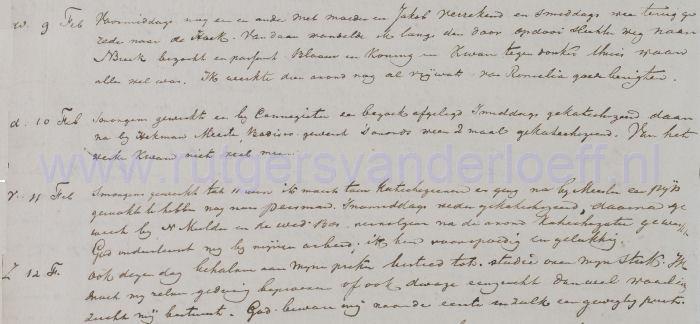 w. 9 Feb Voormiddags nog een en ander met moeder en Jakob verrekend en smiddags weer terug ge
rede naar de Hoek. Van daar wandelde ik langs den door opdooi slechten weg naar
N Beek bezocht en passant Blaauw en Koning en kwam tegen donker thuis waar
alles wel was. Ik werkte dien avond nog al vrij wat. van Romelia goede berigten.
d. 10 Feb Smorgens gewerkt en bij Cannegieter een bezoek afgelegd Smiddags gekatechiseerd, daar
na bij Hekman Meeter, geweest Savonds weer 2 maal gekatechiseerd. Van het
werk kwam niet veel meer.
v. 11 Feb Smorgens gewerkt tot 11 uur ik moest toen katechiseeren en ging na bij Meulen en
gemaakt te hebben nog naar Peesman. Snamiddags weder gekatechiseerd, daarna ge
weest bij N Mulder en de wed. Bos. vervolgens na de avond katechisatie gewerkt.
God ondersteunt mij bij mijnen arbeid. Ik ben voorspoedig en gelukkig.
Z 12 F. Ook dezen dag behalve aan mijne preken besteed tot studie over mijn Stuk. Ik
moest mij zelven gedurig beproeven of ook dwaze eerzucht dan wel waarheids
zucht mij bestuurt. God beware mij voor de eerste en zulk een gewigtig punt.
www.rutgersvanderloeff.nl